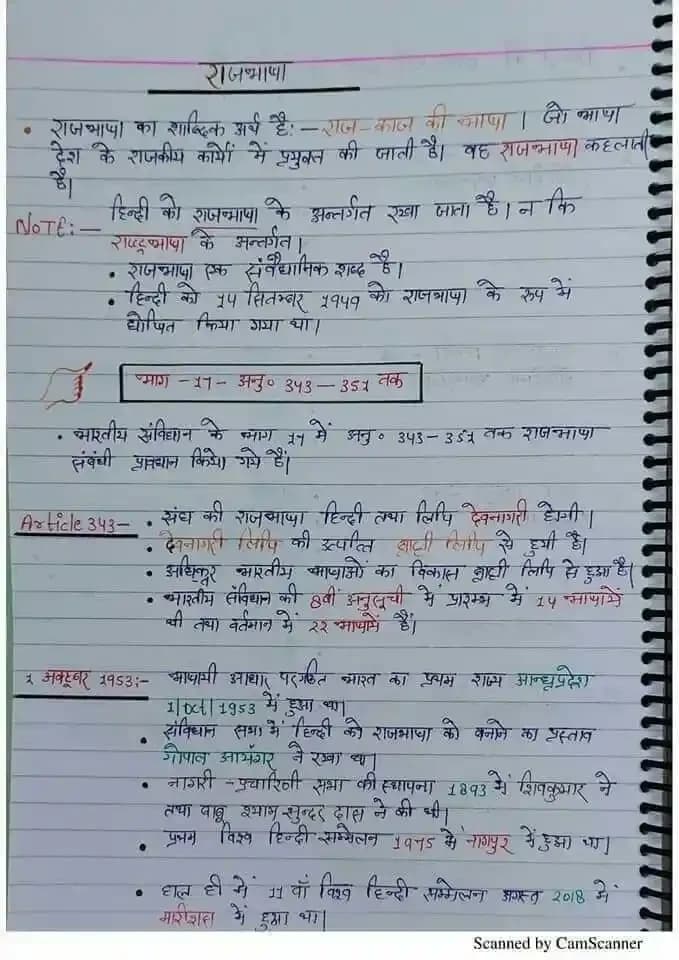 राजभाषा
• राजभाषा का शाब्दिक अर्थ है:- राज-काज की भाषा। जो भाषा
देश के राजकीय कार्यों में प्रयुक्त की जाती है। वह राजभाषा कहलाती
है।
NOTE:- हिन्दी को राजभाषा के अन्तर्गत रखा जाता है। न कि
राष्ट्रभाषा के अन्तर्गत।
• राजभाषा एक संवैधानिक शब्द है।
• हिन्दी को 14 सितम्बर 1949 को राजभाषा के रूप में
घोषित किया गया था।
भाग -17- अनु० 343-351 तक
• भारतीय संविधान के भाग 17 में अनु० 343-351 तक राजभाषा
संबंधी प्रावधान किये गये हैं।
Article 343- • संघ की राजभाषा हिन्दी तथा लिपि देवनागरी होगी।
• देवनागरी लिपि की उत्पत्ति ब्राह्मी लिपि से हुयी है।
• अधिकतर भारतीय भाषाओं का विकास ब्राह्मी लिपि से हुआ है।
• भारतीय संविधान की 8वीं अनुसूची में प्रारम्भ में 14 भाषायें
थी तथा वर्तमान में 22 भाषायें हैं।
1 अक्टूबर 1953:- भाषायी आधार पर गठित भारत का प्रथम राज्य आन्ध्रप्रदेश
1|Oct|1953 में हुआ था।
• संविधान सभा में हिन्दी को राजभाषा को बनाने का प्रस्ताव
गोपाल आयंगर ने रखा था।
• नागरी-प्रचारिणी सभा की स्थापना 1893 में शिवकुमार ने
तथा बाबू श्याम सुन्दर दास ने की थी।
• प्रथम विश्व हिन्दी सम्मेलन 1975 में नागपुर में हुआ था।
• हाल ही में 11 वाँ विश्व हिन्दी सम्मेलन अगस्त 2018 में
मारीशस में हुआ था।
Scanned by CamScanner